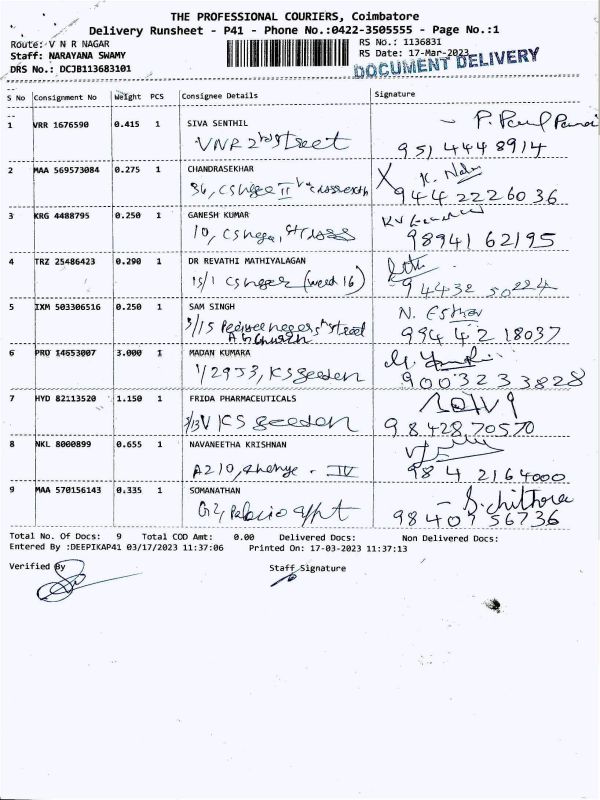 THE PROFESSIONAL COURIERS, Coimbatore
Delivery Runsheet - P41 - Phone No.:0422-3505555 - Page No.:1
Route: V N R NAGAR
RS No.: 1136831
Staff: NARAYANA SWAMY
RS Date: 17-Mar-2023
DRS No.: DCJB113683101
DOCUMENT DELIVERY
S No Consignment No Weight PCS Consignee Details Signature
1 VRR 1676590 0.415 1 SIVA SENTHIL
VNR 2nd street 9514448914
2 MAA 569573084 0.275 1 CHANDRASEKHAR
36, II 9442226036
3 KRG 4488795 0.250 1 GANESH KUMAR
10, 9894162195
4 TRZ 25486423 0.290 1 DR REVATHI MATHIYALAGAN
15/1 (week 16) 94432 50224
5 IXM 503306516 0.250 1 SAM SINGH N. Esther
3/15 street 9944218037
Church
6 PRO 14653007 3.000 1 MADAN KUMARA
1/29J3, KS 9003233828
7 HYD 82113520 1.150 1 FRIDA PHARMACEUTICALS
3/13 V KS 9842870570
8 NKL 8000899 0.655 1 NAVANEETHA KRISHNAN
A210, IV 9842164000
9 MAA 570156143 0.335 1 SOMANATHAN - S. chithra
G2, Palacio 9840756736
Total No. Of Docs: 9 Total COD Amt: 0.00 Delivered Docs: Non Delivered Docs:
Entered By :DEEPIKAP41 03/17/2023 11:37:06 Printed On: 17-03-2023 11:37:13
Verified By Staff Signature